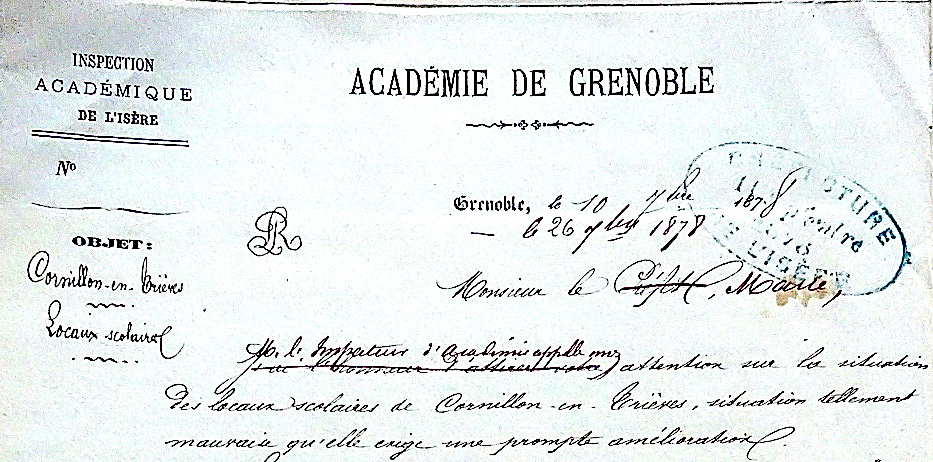 INSPECTION
ACADÉMIQUE
DE L'ISÈRE
ACADÉMIE DE GRENOBLE
Nº
Grenoble, le 10 7bre 1878
— le 26 7bre 1878
PRÉFECTURE
11 septembre
1878
DE L'ISÈRE
OBJET :
Cornillon-en-Trièves
Locaux scolaires
R
Monsieur le Préfet, Maire,
M. l'Inspecteur d'Académie appelle mon
j'ai l'honneur d'attirer votre attention sur la situation
des locaux scolaires de Cornillon-en-Trièves, situation tellement
mauvaise qu'elle exige une prompte amélioration.